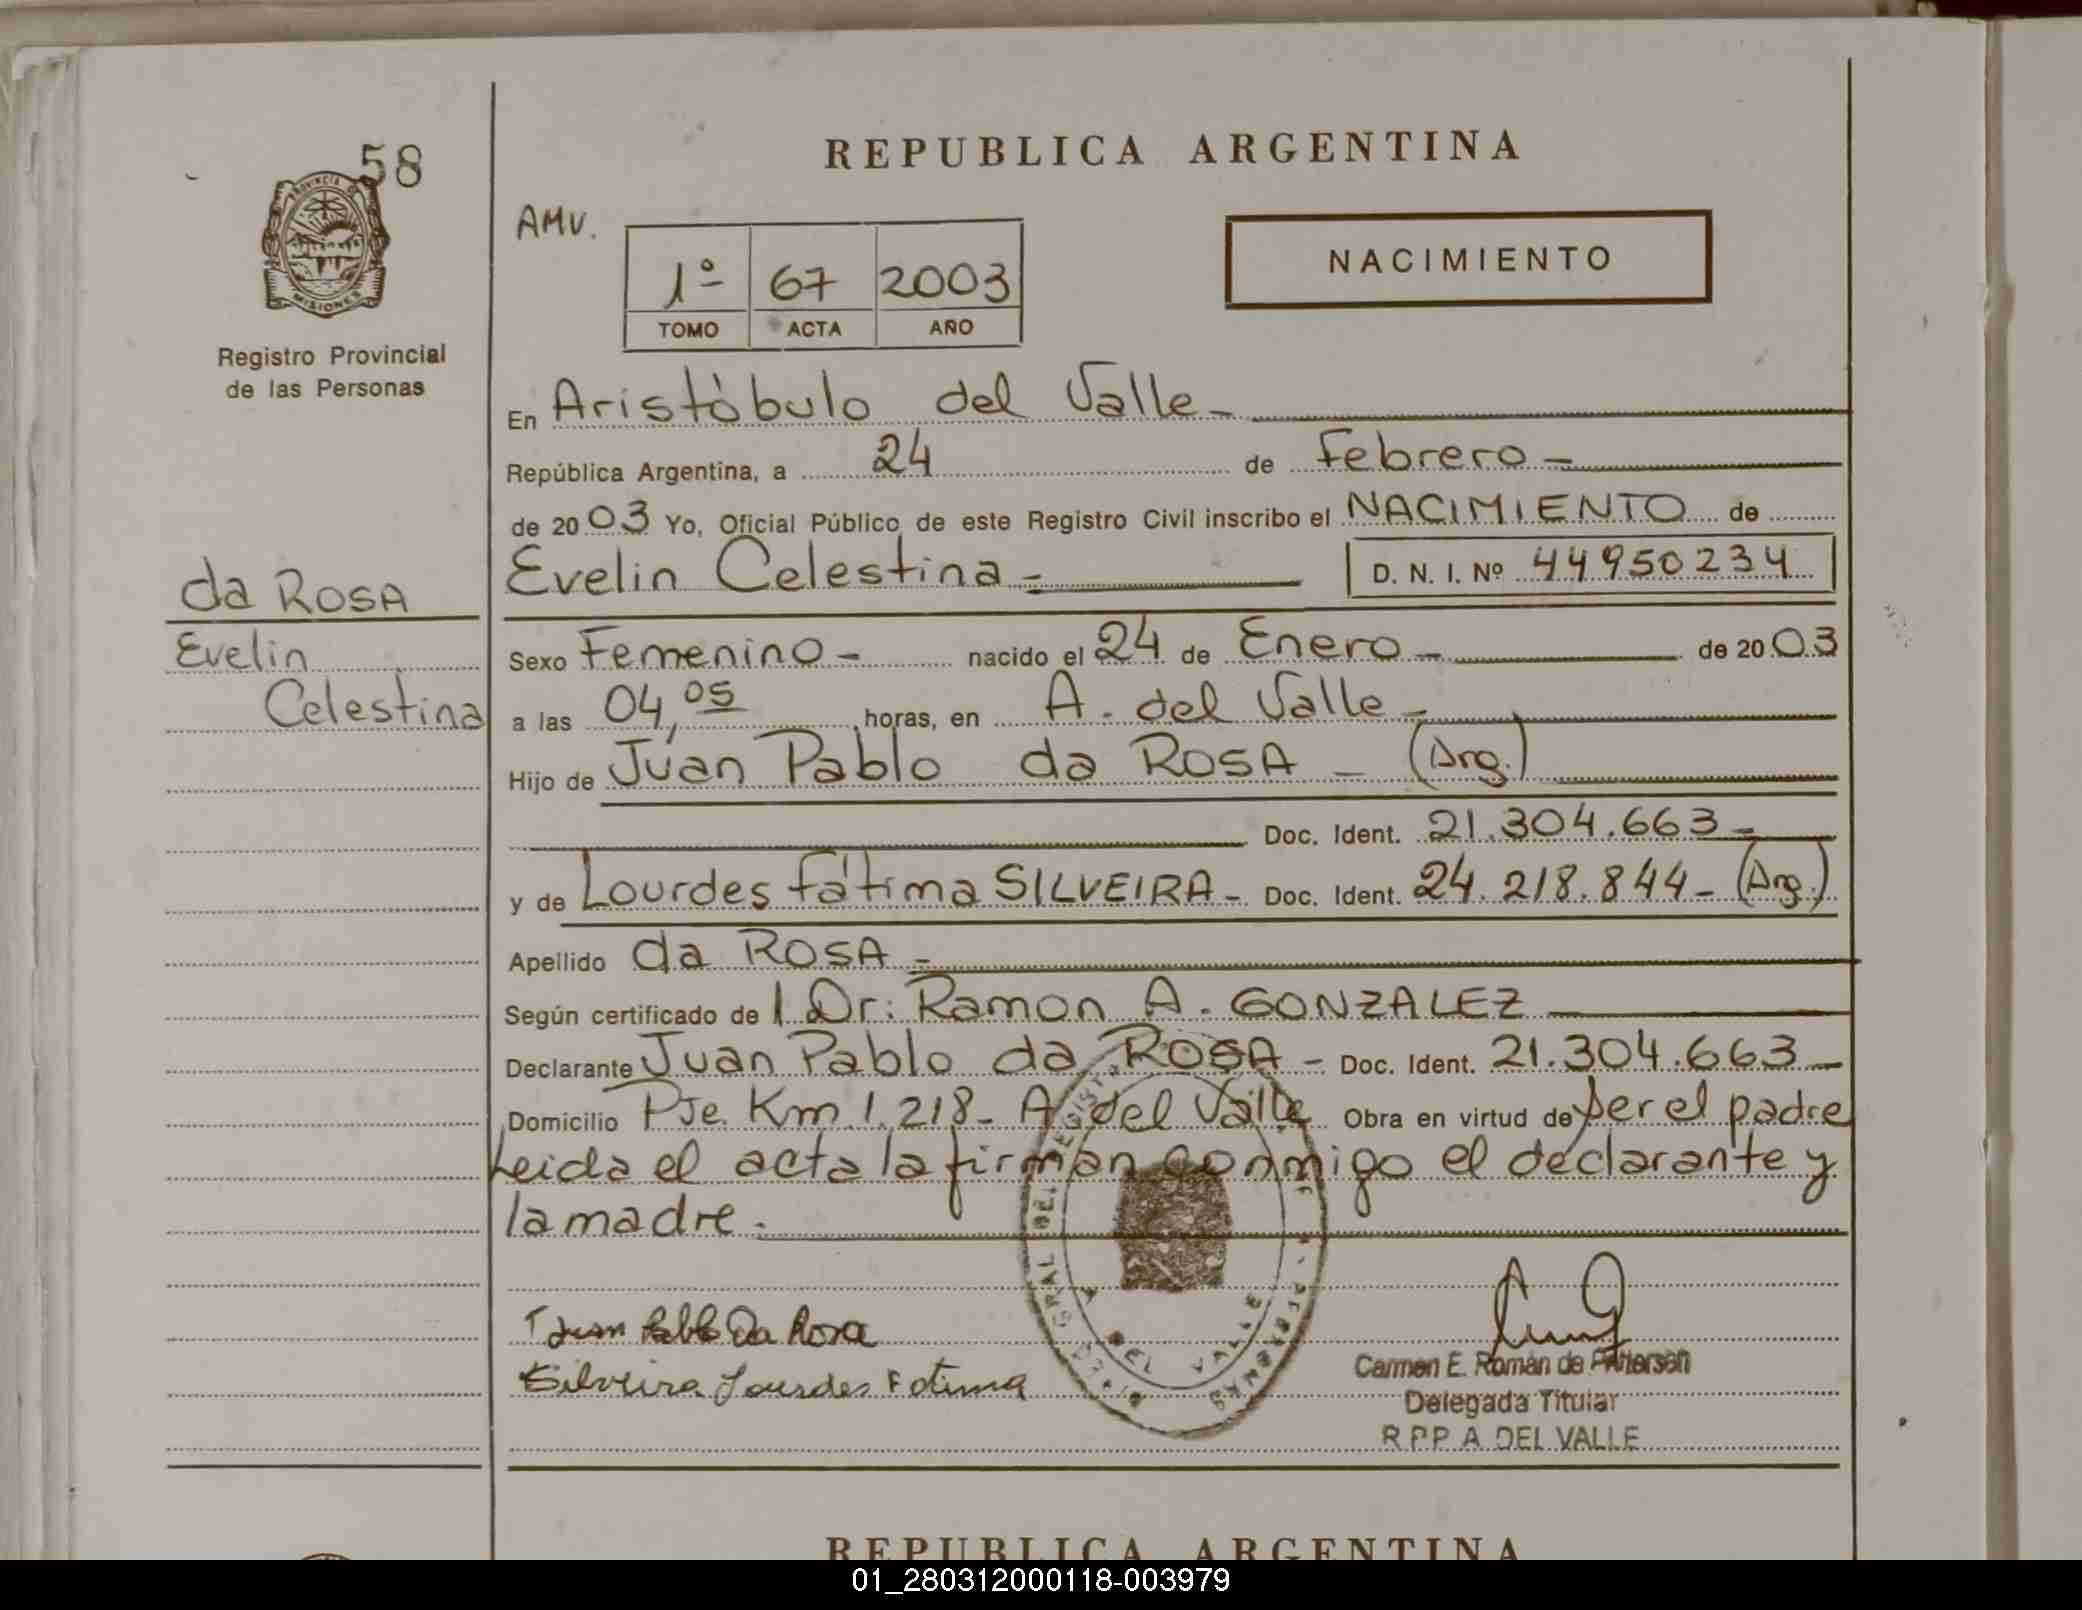 58
PROVINCIA DE
MISIONES
Registro Provincial
de las Personas
da ROSA
Evelin
Celestina
REPUBLICA ARGENTINA
AMV.
1º 67 2003
TOMO ACTA AÑO
NACIMIENTO
En Aristóbulo del Valle -
República Argentina, a 24 de Febrero -
de 2003 Yo, Oficial Público de este Registro Civil inscribo el NACIMIENTO de
Evelin Celestina - D. N. I. Nº 44950234
Sexo Femenino - nacido el 24 de Enero - de 2003
a las 04,05 horas, en A. del Valle -
Hijo de Juan Pablo da ROSA - (Arg.)
Doc. Ident. 21.304.663 -
y de Lourdes Fátima SILVEIRA - Doc. Ident. 24.218.844 - (Arg.)
Apellido da ROSA -
Según certificado de l Dr: Ramon A. GONZALEZ
Declarante Juan Pablo da ROSA - Doc. Ident. 21.304.663 -
Domicilio Pje. Km 1.218 - A. del Valle Obra en virtud de ser el padre
Leida el acta la firman conmigo el declarante y
la madre.
Juan Pablo Da Rosa
Silveira Lourdes Fatima
DEL VALLE
Carmen E. Román de
Delegada Titular
R P P A DEL VALLE
REPUBLICA ARGENTINA
01_280312000118-003979